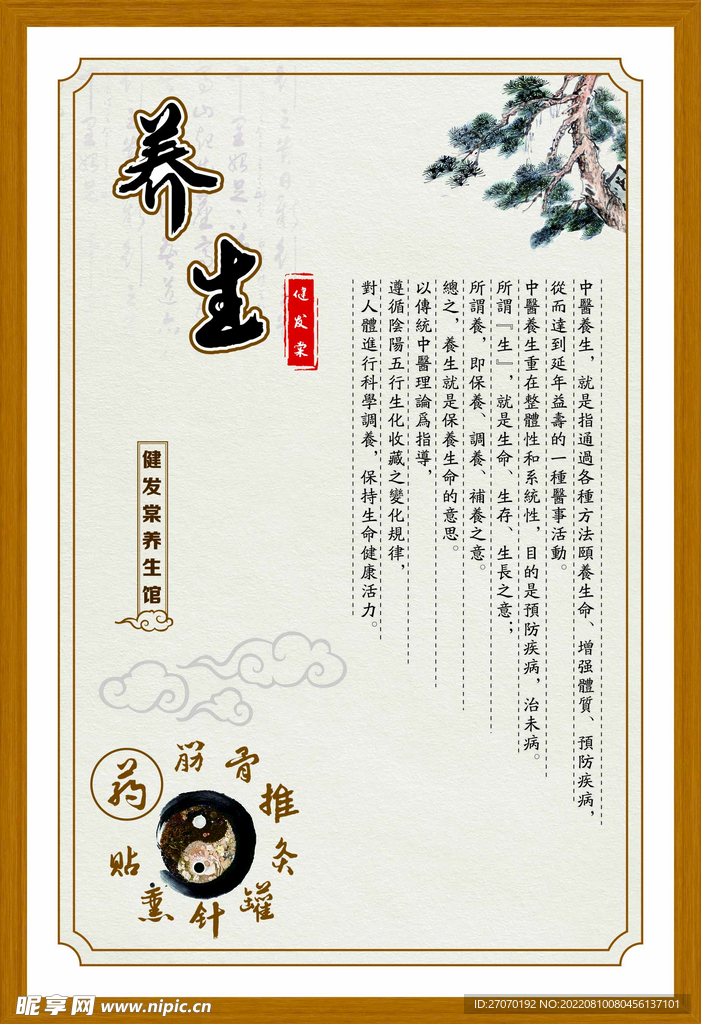 养生
健发棠
中醫養生，就是指通過各種方法頤養生命、增强體質、預防疾病，
從而達到延年益壽的一種醫事活動。
中醫養生重在整體性和系統性，目的是預防疾病，治未病。
所謂『生』，就是生命、生存、生長之意；
所謂養，即保養、調養、補養之意。
總之，養生就是保養生命的意思。
以傳統中醫理論爲指導，
遵循陰陽五行生化收藏之變化規律，
對人體進行科學調養，保持生命健康活力。
健发棠养生馆
药
筋
骨
推
灸
罐
针
熏
贴
昵享网 www.nipic.cn
ID:27070192 NO:20220810080456137101